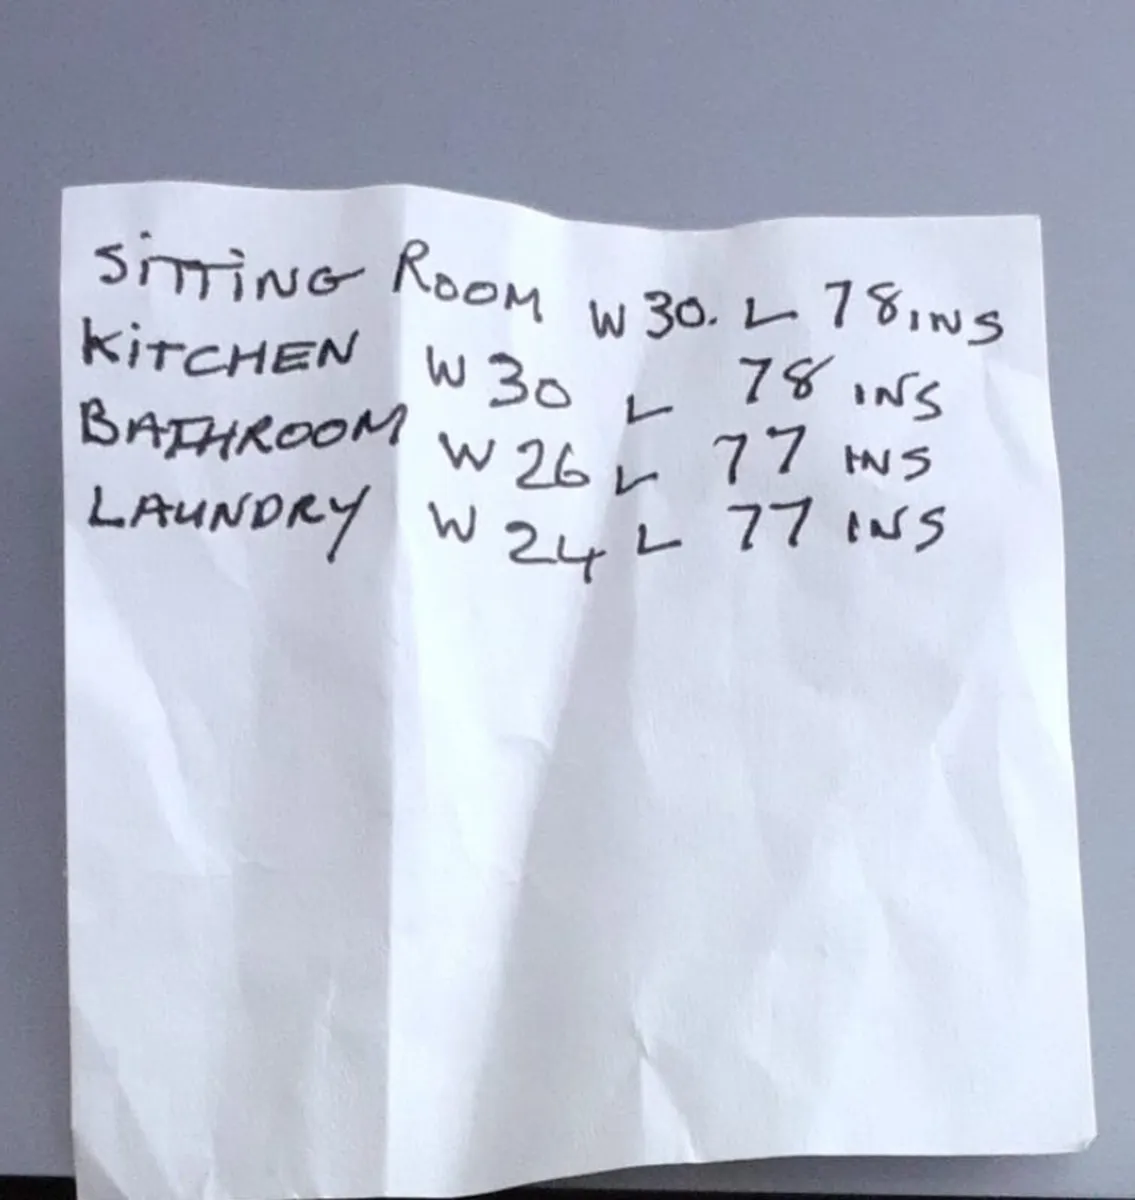 SITTING ROOM W 30. L 78 INS
KITCHEN W 30 L 78 INS
BATHROOM W 26 L 77 INS
LAUNDRY W 24 L 77 INS